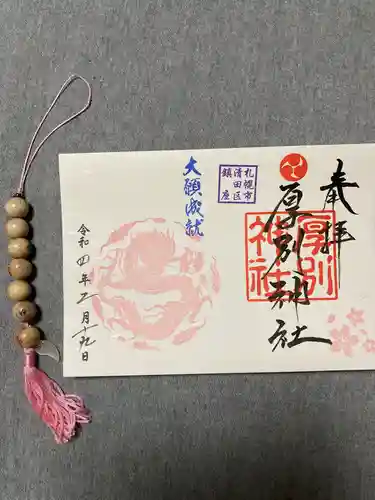 奉拝
厚別神社
厚別
神社
札幌市
清田区
鎮座
大願成就
令和四年五月十九日